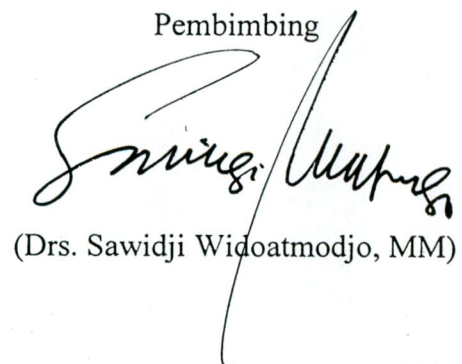 Pembimbing
(Drs. Sawidji Widoatmodjo, MM)